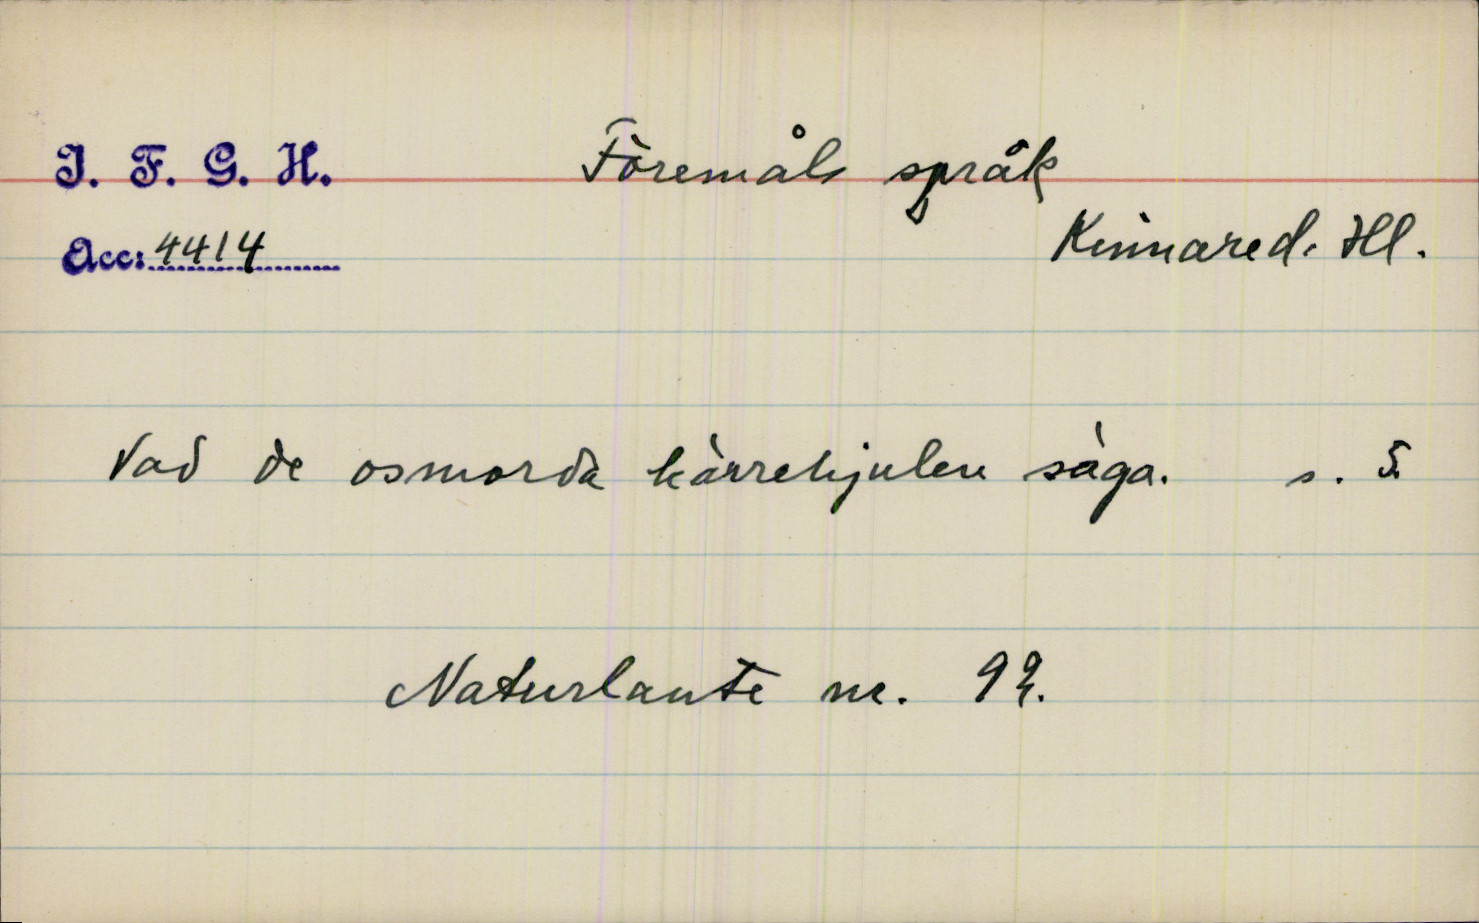 I. F. G. H.
Föremåls språk
Acc: 4414
Kinnared. Hl.
Vad de osmorda kärrehjulen säga. s. 5
Naturlaute nr. 92.